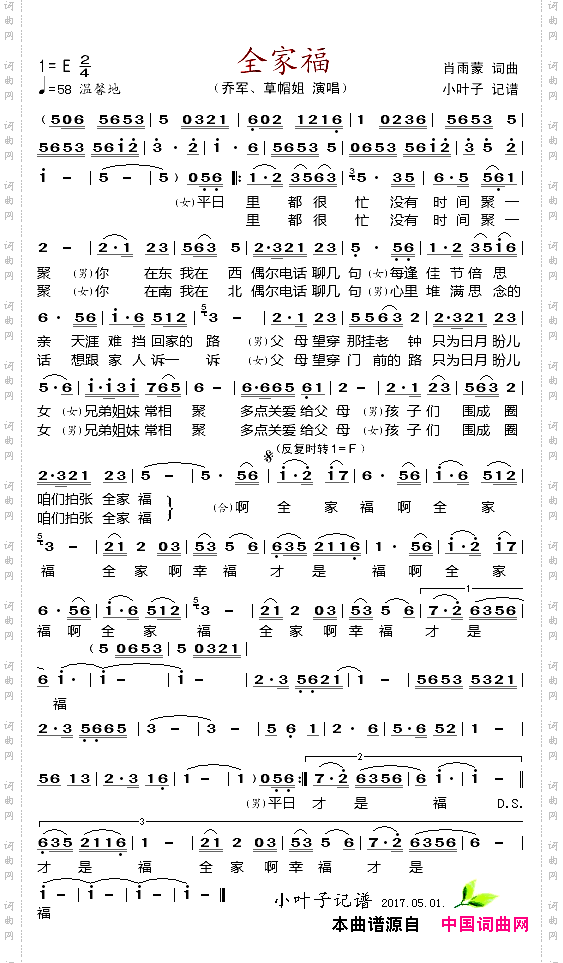 全家福
1= E 2/4
♩=58 温馨地
（乔军、草帽姐 演唱）
肖雨蒙 词曲
小叶子 记谱
（506 5653 | 5 0321 | 602 1216 | 1 0236 | 5653 5 |
5653 56i2 | 3·2 | i·6 | 5653 5 | 0653 56i2 | 3 5 2 |
i － | 5 － | 5 ）056 ‖: i·2 3563 | 5·35 | 6·5 561 |
（女）平日 里 都很 忙 没有 时间聚一
里 都很 忙 没有 时间聚一
2 － | 2·1 23 | 563 5 | 2·321 23 | 5· 56 | i·2 3516 |
聚 （男）你 在东 我在 西 偶尔电话 聊几 句（女）每逢 佳 节倍 思
聚 （女）你 在南 我在 北 偶尔电话 聊几 句（男）心里 堆 满思 念的
6· 56 | i·6 512 | 3 － | 2·1 23 | 563 5 | 2·321 23 |
亲 天涯 难 挡 回家的 路 （男）父 母 望穿 那挂老 钟 只为日月 盼儿
话 想跟 家 人 诉一 诉 （女）父 母 望穿 门 前的 路 只为日月 盼儿
5·6 | i·i3i 765 | 6 － | 6·665 61 | 2 － | 2·1 23 | 563 2 |
女 （女）兄弟姐妹 常相 聚 多点关爱 给父 母（男）孩 子 们 围成 圈
女 （男）兄弟姐妹 常相 聚 多点关爱 给父 母（女）孩 子 们 围成 圈
（反复时转1=F）
2·321 23 | 5 － | 5· 56 | i·2 i7 | 6· 56 | i·6 512 |
咱们拍张 全家 福
咱们拍张 全家 福
（合）啊 全 家 福 啊 全 家
3 － | 21 2 03 | 53 5 6 | 635 2116 | 1· 56 | i·2 i7 |
福 全 家 啊 幸 福 才 是 福 啊 全 家
6· 56 | i·6 512 | 3 － | 21 2 03 | 53 5 6 | 7·2 6356 |
福 啊 全 家 福 全 家 啊 幸 福 才 是
（5 0653 | 5 0321
6 i· | i － | i － | 2·3 5621 | i － | 5653 5321 |
福
2·3 5665 | 3 － | 3 － | 5 6 1 | 2· 6 | 5·6 52 | 1 － |
56 13 | 2·3 16 | 1 － | 1 ）056 :‖ 7·2 6356 | 6 i· | i － ‖
（男）平日 才 是 福 D.S.
635 2116 | 1 － | 21 2 03 | 53 5 6 | 7·2 6356 |
才 是 福 全 家 啊 幸 福 才 是
i － | i － | i － | i － ‖
福
小叶子记谱 2017.05.01.
本曲谱源自 中国词曲网